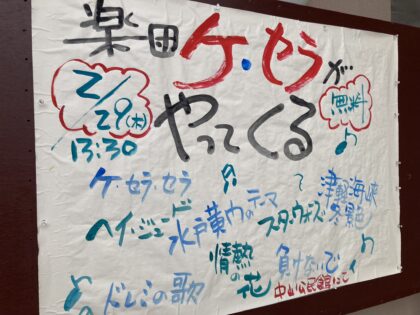 楽団ケ・セラが
やってくる
2/29(木)
13:30
無料
ケ・セラ・セラ
ヘイ・ジュード
水戸黄門のテーマ
スターウォーズ
津軽海峡
冬景色
情熱
の花
負けないで
ドレミの歌
中山公民館にて